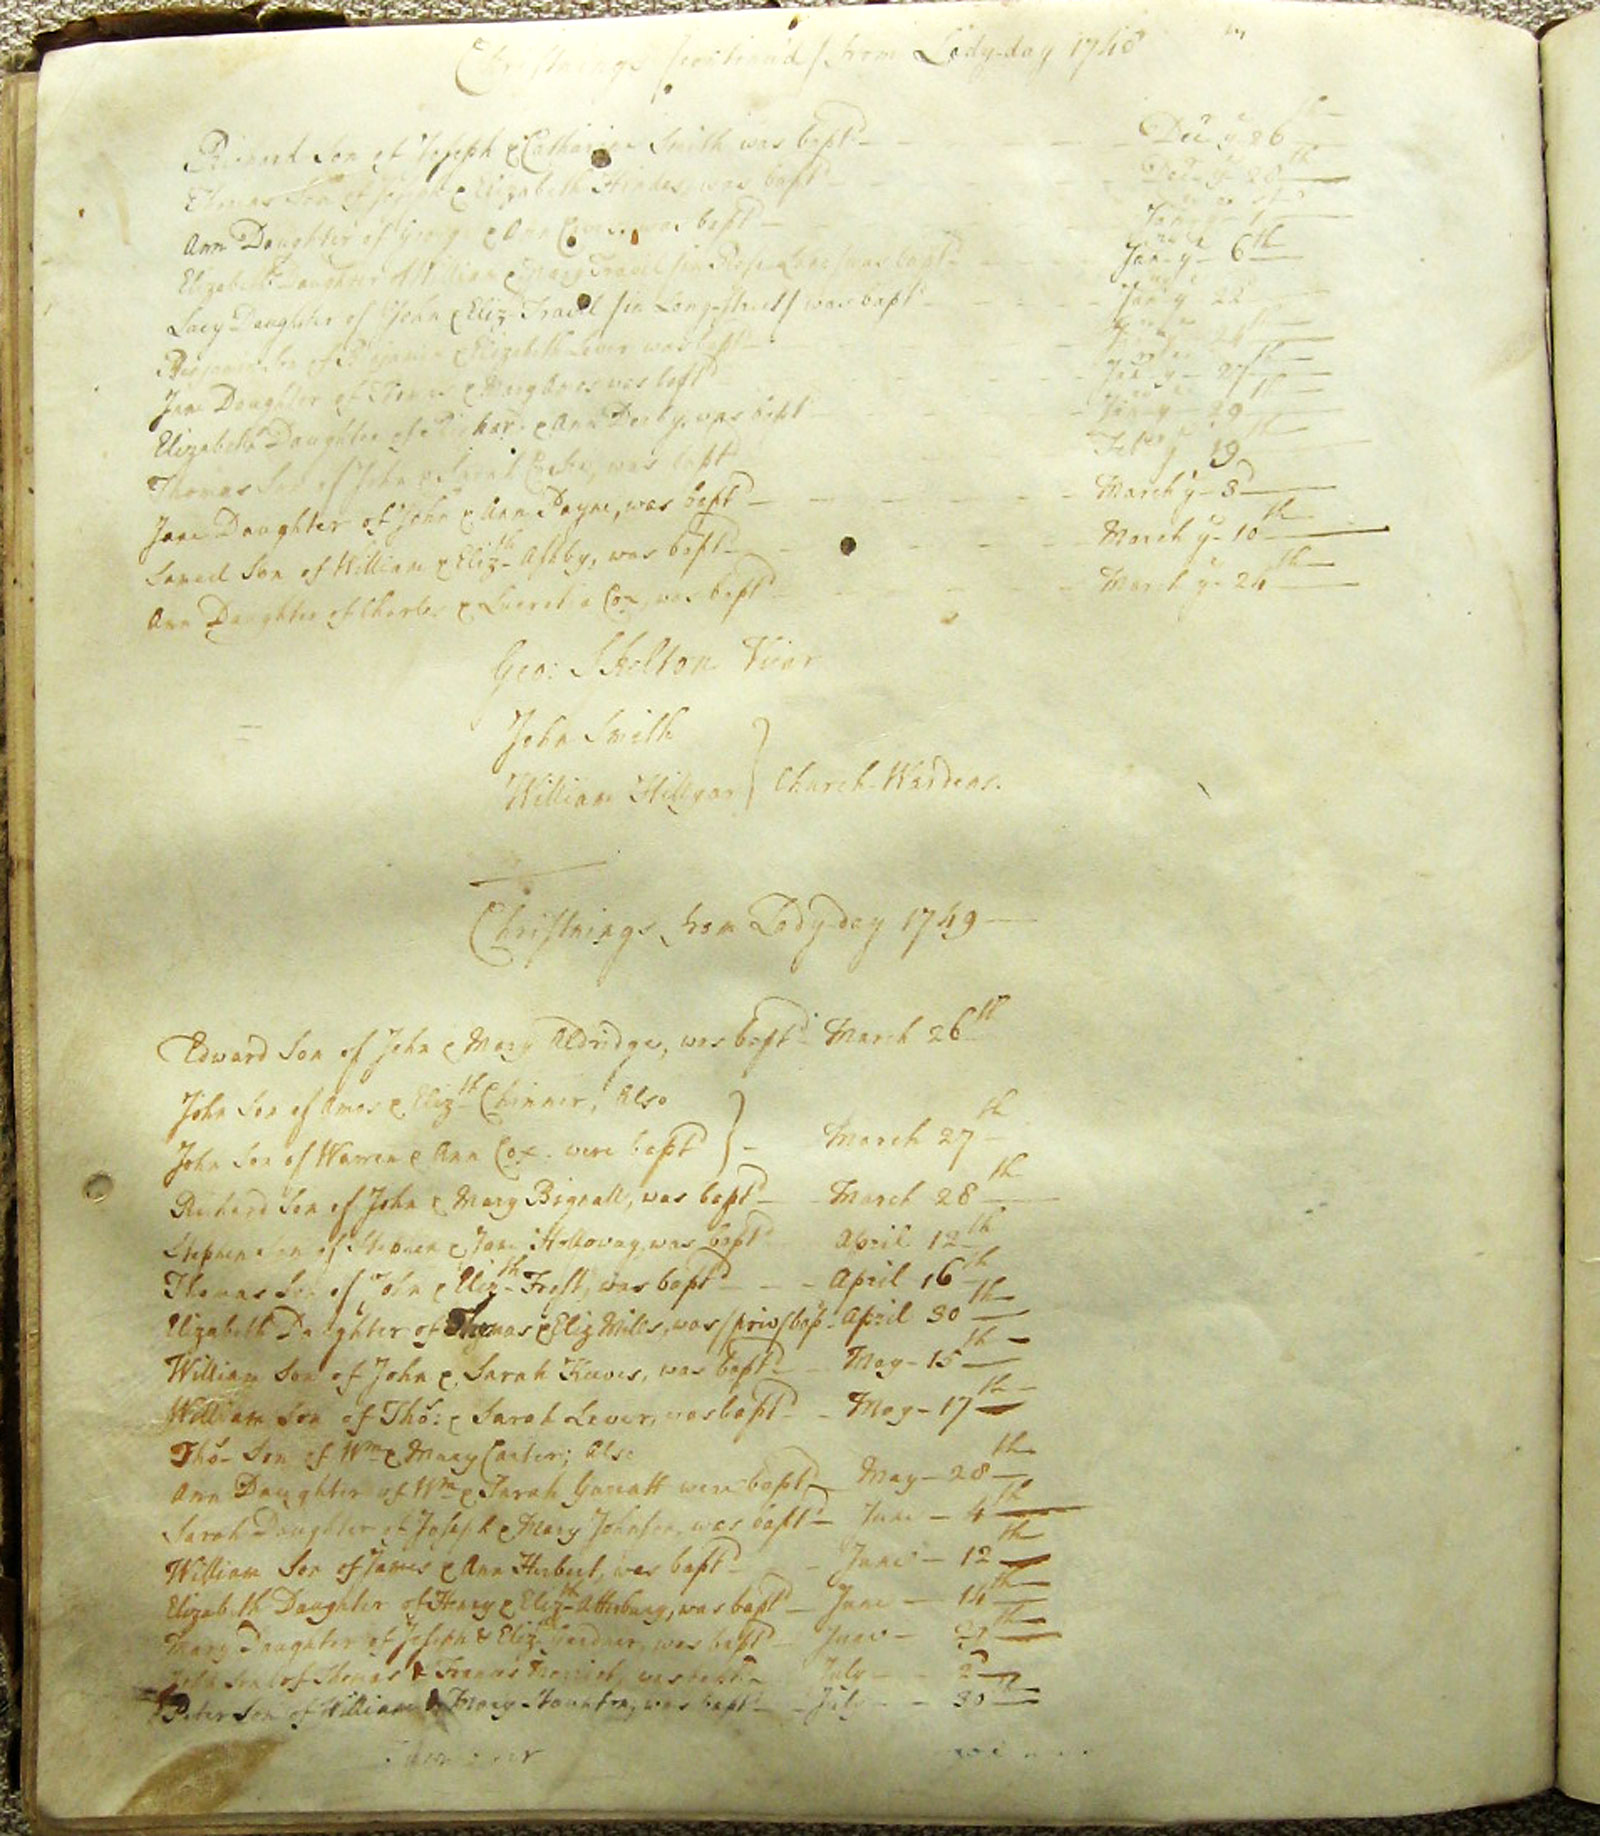 Christnings /continued/ from Lady-day 1748
Richard Son of Joseph & Catharine Smith was bapt.d Dec.r y.e 26th
Thomas Son of Joseph & Elizabeth Hindes was bapt.d
Ann Daughter of George & Ann was bapt.d Jan. y.e 1st
Elizabeth Daughter of William & Mary Travel /in Rose-Lane/ was bapt.d Jan. y.e 6th
Lucy Daughter of John & Eliz. Travel /in Long-street/ was bapt.d Jan. y.e 22
Benjamin Son of Benjamin & Elizabeth Lever was bapt.d
Jane Daughter of Thomas & Mary was bapt.d Jan. y.e
Elizabeth Daughter of Richard & Ann Derby, was bapt.d Jan. y.e 29th
Thomas Son of John & Sarah was bapt.d Feb. y.e 19th
Jane Daughter of John & Ann Payne, was bapt.d March y.e 3d
Samuel Son of William & Eliz.th Ashby, was bapt.d March y.e 10th
Ann Daughter of Charles & Lucretia Cox, was bapt.d March y.e 24th
Geo: Skelton Vicar
John Smith
William Hillyar } Church-Wardens.
Christnings from Lady-day 1749
Edward Son of John & Mary Aldridge, was bapt.d March 26th
John Son of Amos & Eliz.th Chinner, Also
John Son of Warren & Ann Cox were bapt.d } March 27th
Richard Son of John & Mary Bignall, was bapt.d March 28th
Stephen Son of Stephen & Jane Holloway, was bapt.d April 12th
Thomas Son of John & Eliz.th Frost, was bapt.d April 16th
Elizabeth Daughter of Thomas & Eliz Mills, was /priv/ bap. April 30th
William Son of John & Sarah Keeves, was bapt.d May 15th
William Son of Tho: & Sarah Lever, was bapt.d May 17th
Tho.s Son of W.m & Mary Carter; Also
Ann Daughter of W.m & Sarah Garratt were bapt.d May 28th
Sarah Daughter of Joseph & Mary Johnson, was bapt.d June 4th
William Son of James & Ann Herbert, was bapt.d June 12th
Elizabeth Daughter of Henry & Eliz.th Atterbury, was bapt.d June 14th
Mary Daughter of Joseph & Eliz.th Gardner, was bapt.d June
John Son of Thomas & Frances was bapt.d July 2d
Peter Son of William & Mary was bapt.d July 30th